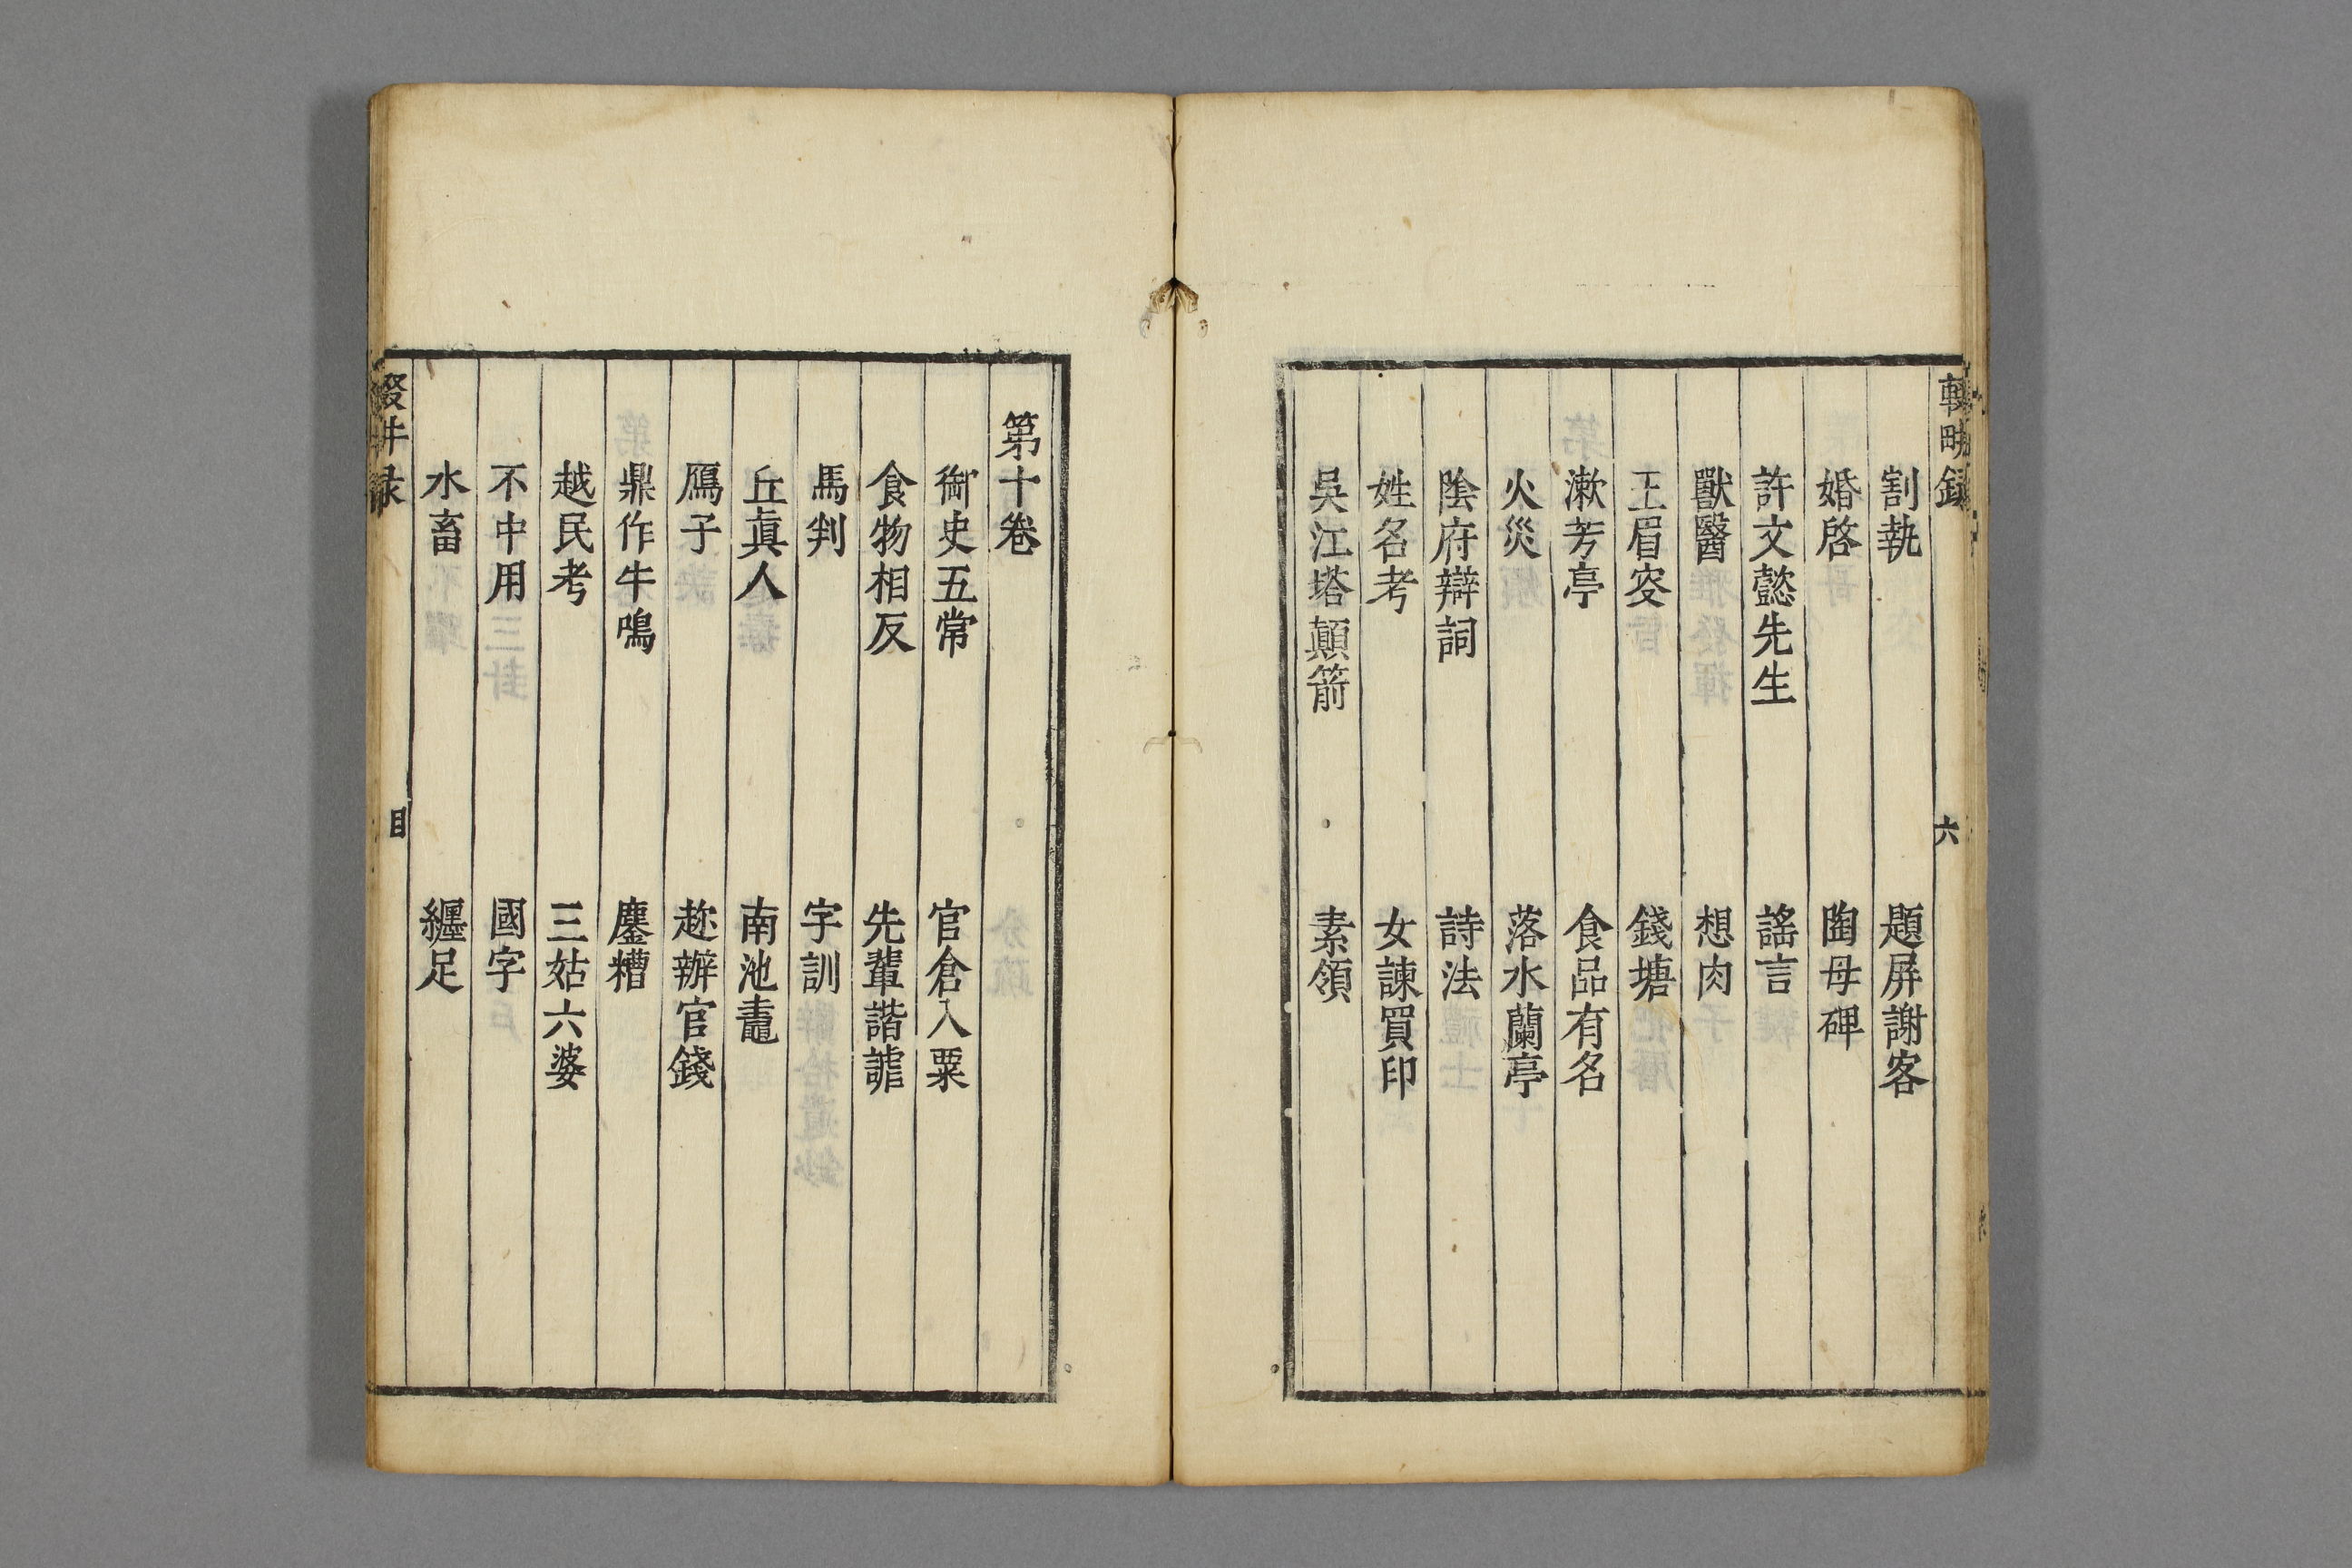 割執 題屏謝客
婚啓 陶母碑
許文懿先生 謠言
獸醫 想肉
王眉叜 錢塘
漱芳亭 食品有名
火災 落水蘭亭
陰府辯詞 詩法
姓名考 女諫買印
吳江塔顛箭 素領
第十卷
御史五常 官倉入粟
食物相反 先輩諧謔
馬判 字訓
丘眞人 南池鼃
鴈子 趂辦官錢
鼎作牛鳴 鏖糟
越民考 三姑六婆
不中用 國字
水畜 纏足
六
目